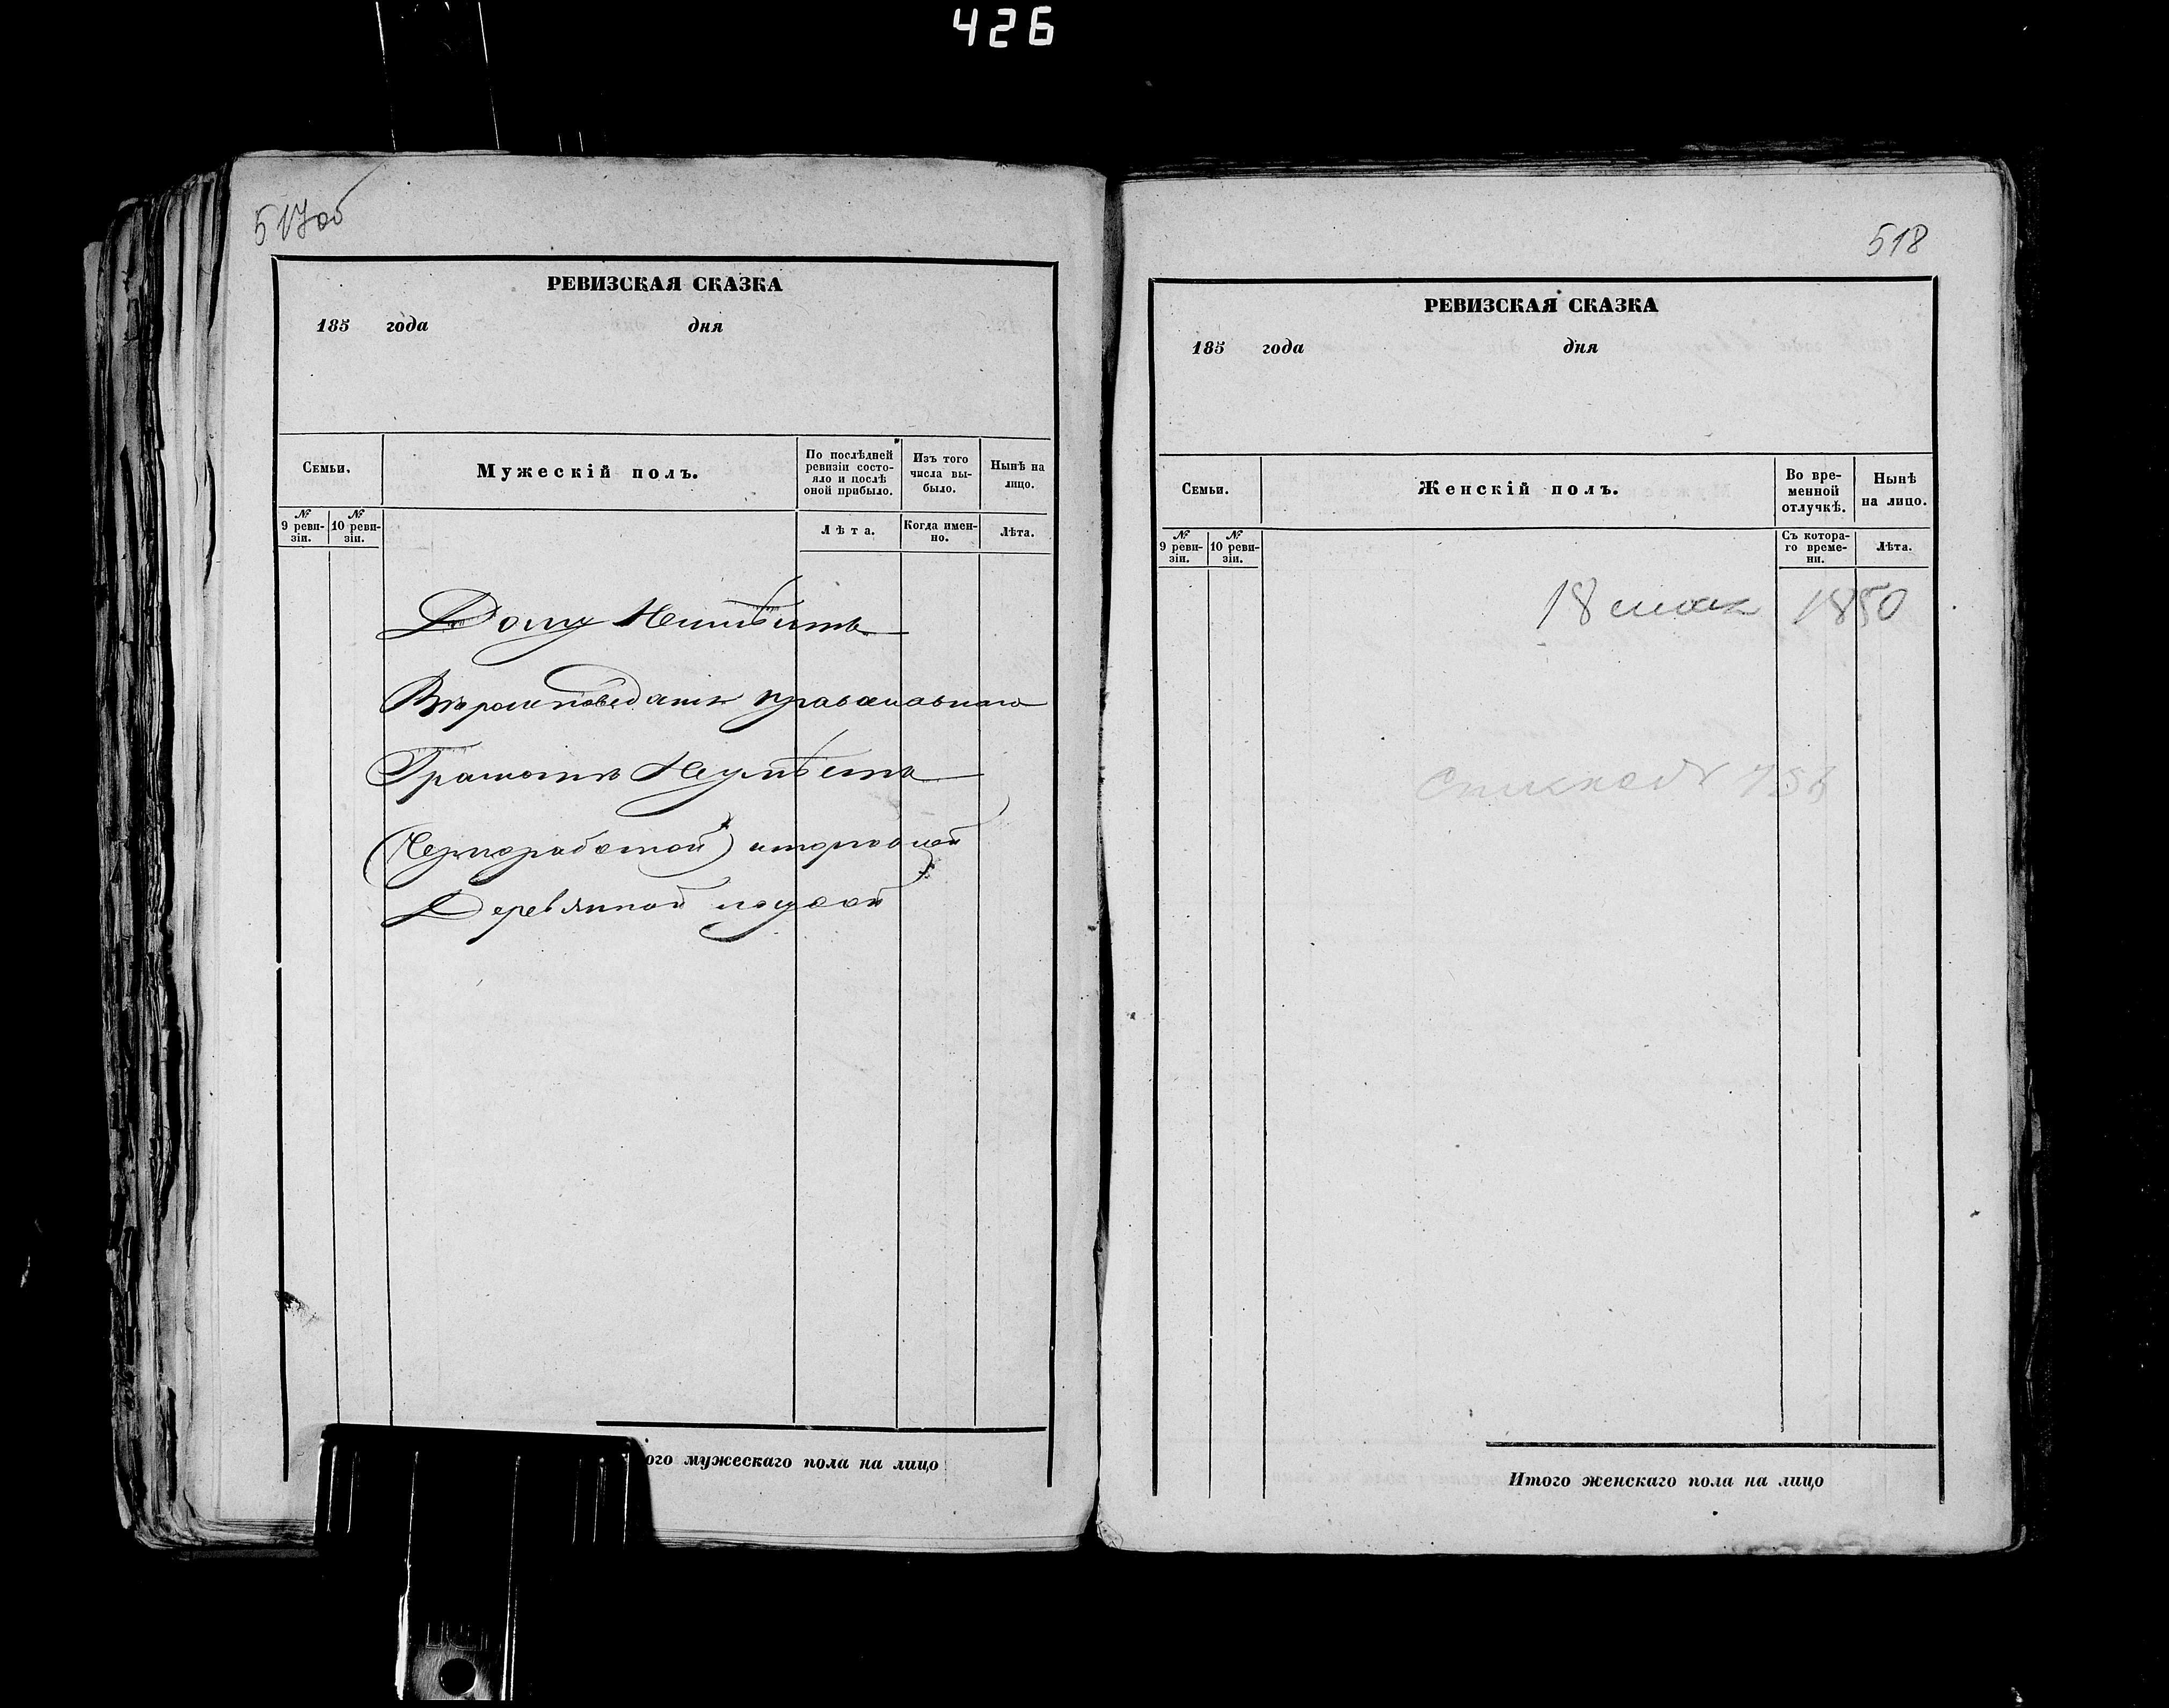 426
517об
РЕВИЗСКАЯ СКАЗКА
185 года дня
Семьи.
Мужескій полъ.
По послѣдней ревизіи состояло и послѣ оной прибыло.
Изъ того числа выбыло.
Нынѣ на лицо.
№ 9 ревизіи.
№ 10 ревизіи.
Лѣта.
Когда именно.
Лѣта.
Дому Неимѣитъ
Вѣроисповеданія православнаго
Грамотѣ Неумѣетъ
(Чернаработой) иторговлей
Деревянной посудой
ого мужескаго пола на лицо
518
РЕВИЗСКАЯ СКАЗКА
185 года дня
Семьи.
Женскій полъ.
Во временной отлучкѣ.
Нынѣ на лицо.
№ 9 ревизіи.
№ 10 ревизіи.
Съ котораго времени.
Лѣта.
18 1850
Итого женскаго пола на лицо